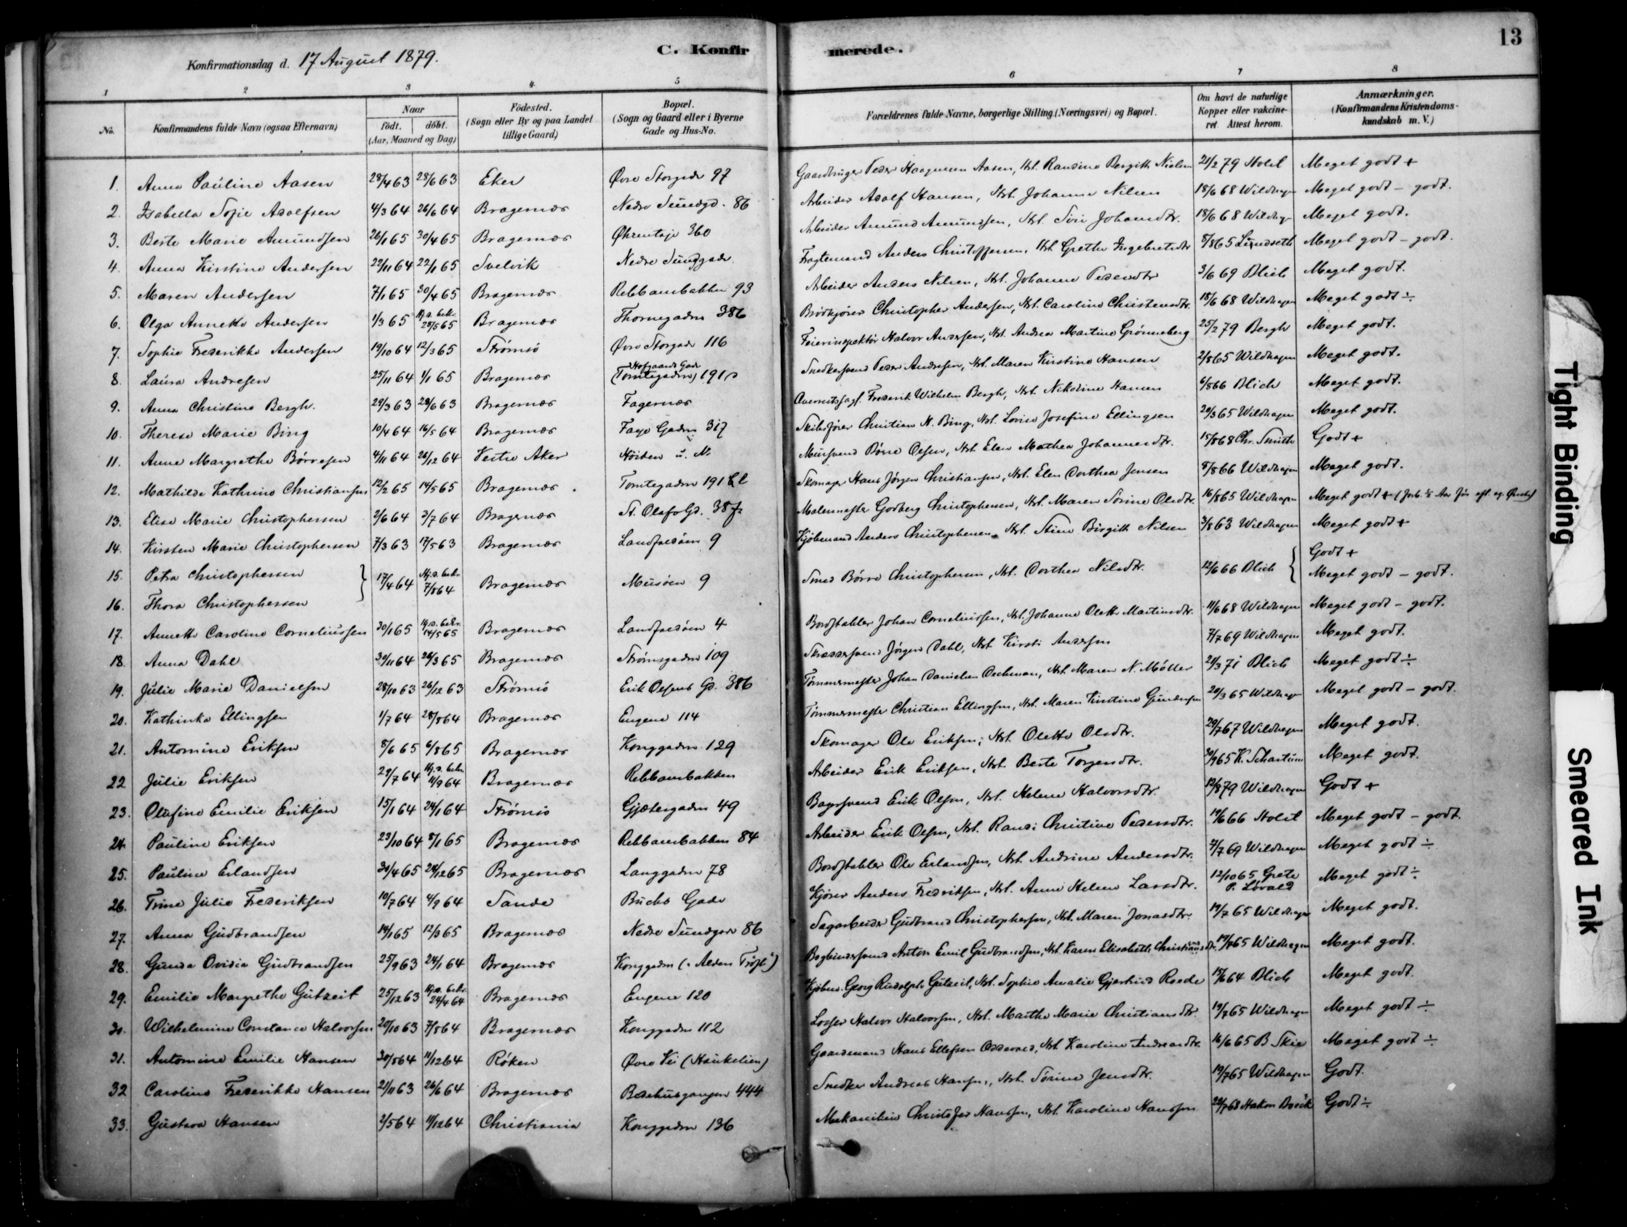 C. Konfirmerede.
13
Konfirmationsdag d. 17 August 1879.
1 2 3 4 5 6 7 8
No.
Konfirmandens fulde Navn (ogsaa Efternavn)
Naar
født. døbt.
(Aar, Maaned og Dag)
Fødested.
(Sogn eller By og paa Landet tillige Gaard)
Bopæl.
(Sogn og Gaard eller i Byerne Gade og Hus-No.
Forældrenes fulde Navne, borgerlige Stilling (Næringsvei) og Bopæl.
Om havt de naturlige Kopper eller vaccineret Attest herom.
Anmærkninger.
(Konfirmandens Kristendomskundskab m. V.)
1. Anna Pauline Aasen 28/4 63 28/6 63 Eker Øvre Storgade 97 Meget godt +
2. Isabella Sofie Adolfsen 4/3 64 26/6 64 Bragernæs Nedre Sundgd. 86 Arbeider Adolf Hansen, Johanne Nilsen 18/6 68 Wildhagen Meget godt - godt.
3. Berte Marie Amundsen 26/1 65 30/4 65 Bragernæs 360 Arbeider Amund Amundsen, 18/6 68 Meget godt.
4. Anna Kirstine Andersen 22/11 64 22/1 65 Svelvik Nedre Sundgade Fragtemand Anders Christophersen, Grethe Ingebretsdtr 7/8 65 Meget godt - godt.
5. Maren Andersen 7/1 65 30/4 65 Bragernæs Rebbanebakken 93 Arbeider Anders Nilsen, Johanne Pedersdtr 3/6 69 Blich Meget godt.
6. Olga Annette Andersen 1/3 65 Hj.d. bekr. 28/5 65 Bragernæs Thornegaden 386 Christopher Andersen, Caroline Christensdtr. 18/6 68 Wildhagen Meget godt ÷
7. Sophie Frederikke Andersen 19/10 64 12/3 65 Strømsø Øvre Storgade 116 Feierinspektør Halvor Andersen, Andrea Martine Grønneberg 25/2 79 Bergh Meget godt.
8. Laura Andresen 25/11 64 1/1 65 Bragernæs Hofgaards Gade (Tomtegaden) 191 Snedkersvend Peder Andresen, Maren Kirstine Hansen 2/8 65 Wildhagen Meget godt.
9. Anna Christine Bergh. 29/3 63 28/6 63 Bragernæs Fagernæs Frederik Wilhelm Bergh, Nikoline Hansen 4/8 66 Blich Meget godt.
10. Therese Marie Bing 10/4 64 16/5 64 Bragernæs Gaden 317 Skibsfører Christian H. Bing, Lovise Josefine Ellingsen 20/3 65 Wildhagen Meget godt.
11. Anne Margrethe Børresen 4/11 64 26/12 64 Vestre Aker Høiden u. N. Børre Olsen, Elen Mathea Johannesdtr. 15/8 68 Chr. Smith Godt +
12. Mathilde Kathrine Christiansen 12/2 65 14/5 65 Bragernæs Tomtegaden 191 Skomager Hans Jørgen Christiansen, Elen Dorthea Jensen 8/8 66 Wildhagen Meget godt.
13. Elise Marie Christophersen 2/6 64 3/7 64 Bragernæs St. Olafs Gd. 38 Malermester Christophersen, Maren Sørine Olsdtr. 16/8 65 Wildhagen Meget godt +
14. Kirsten Marie Christophersen 7/3 63 17/5 63 Bragernæs Landfaldøen 9 Kjøbmand Anders Christophersen, Stine Birgitte Nilsen 3/8 63 Wildhagen Meget godt +
15. Petra Christophersen Godt +
16. Thora Christophersen 17/4 64 Hj.d. bekr. 7/8 64 Bragernæs Meisøen 9 Smed Børre Christophersen, Dorthea Nilsdtr. 12/6 66 Blich Meget godt - godt.
17. Annette Caroline Corneliussen 20/1 65 Hj.d. bekr. 14/5 65 Bragernæs Landfaldøen 4 Bordstabler Johan Corneliussen, Johanne Oleth. Martinsdtr. 11/6 68 Wildhagen Meget godt - godt.
18. Anna Dahl 30/11 64 26/3 65 Bragernæs Strømsgaden 109 Jørgen Dahl, Kirsti Andersen 7/7 69 Wildhagen Meget godt.
19. Julie Marie Danielsen 28/10 63 26/12 63 Strømsø Erik Olsens Gd. 386 Tømmermester Johan Danielsen, Maren N. Møller 21/3 71 Blich Meget godt ÷
20. Kathinka Ellingsen 1/7 64 28/8 64 Bragernæs Engene 114 Tømmermester Christian Ellingsen, Maren Kirstine Gundersen 20/3 65 Wildhagen Meget godt - godt.
21. Antomine Eriksen 8/6 65 6/8 65 Bragernæs Konggaden 129 Skomager Ole Eriksen, Olette Olsdtr. 29/7 67 Wildhagen Meget godt.
22 Julie Eriksen 29/7 64 Hj.d. bekr. 11/9 64 Bragernæs Rebbanebakken Arbeider Erik Eriksen, Berte Torgersdtr. K. Schartum Meget godt.
23. Olufine Emilie Eriksen 15/1 64 24/1 64 Strømsø Gjetergaden 49 Bagersvend Erik Olsen, Helene Halvorsdtr. Wildhagen Godt +
24. Pauline Eriksen 23/10 64 8/1 65 Bragernæs Rebbanebakken 84 Arbeider Erik Olsen, Randi Christine Pedersdtr. 14/6 66 Holst Meget godt - godt.
25. Pauline Erlandsen 30/4 65 24/12 65 Bragernæs Langgaden 78 Bordstabler Ole Erlandsen, Andrine Andersdtr. 7/7 69 Wildhagen Meget godt ÷
26. Trine Julie Frederiksen 19/7 64 4/9 64 Sande Buchs Gade Kjører Anders Fredriksen, Anne Helene Larsdtr. 12/10 65 Grete P. Løvald Meget godt ÷
27. Anna Gudbrandsen 14/1 65 12/3 65 Bragernæs Nedre Sundgade 86 Sagarbeider Gudbrand Christophersen, Maren Jonasdtr. 19/7 65 Wildhagen Meget godt.
28. Gunda Ovidia Gudbrandsen 25/9 63 24/1 64 Bragernæs Konggaden Bogbindersvend Anton Emil Gudbrandsen, Karen Elisabeth Christiansdtr. Wildhagen Meget godt.
29. Emilie Margrethe Gutzeit 25/12 63 Hj.d. bekr. 24/4 64 Bragernæs Engene 120 Kjøbm. Georg Rudolph Gutzeit, Sophie Amalie Gjertrud Roede 17/6 64 Blich Meget godt.
30. Wilhelmine Constance Halvorsen 20/10 63 7/8 64 Bragernæs Konggaden 112 Losser Halvor Halvorsen, Marthe Marie Christiansdtr. 19/7 65 Wildhagen Meget godt ÷
31. Antomine Emilie Hansen 30/8 64 11/12 64 Røken Øvre Vei (Haukelien) Gaardmand Hans Ellefsen, Karoline Andreasdtr 16/6 65 B. Skie Meget godt ÷
32 Caroline Frederikke Hansen 21/11 63 26/6 64 Bragernæs Badehusgangen 444 Snedker Andreas Hansen, Sørine Jensdtr. 19/7 65 Wildhagen Godt.
33. Gustava Hansen 2/5 64 11/12 64 Christiania Konggaden 136 Mekanikus Christofer Hansen, Karoline Hansen Godt ÷
Tight Binding
Smeared Ink